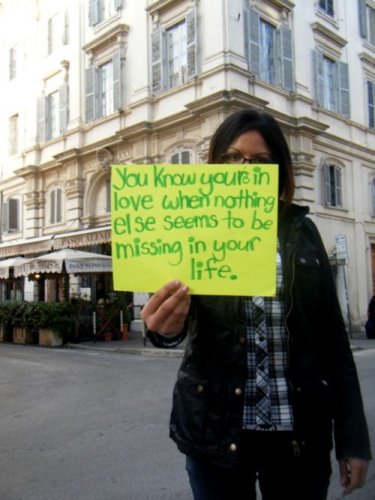 You know your in
love when nothing
else seems to be
missing in your
life.
PASQUALINO